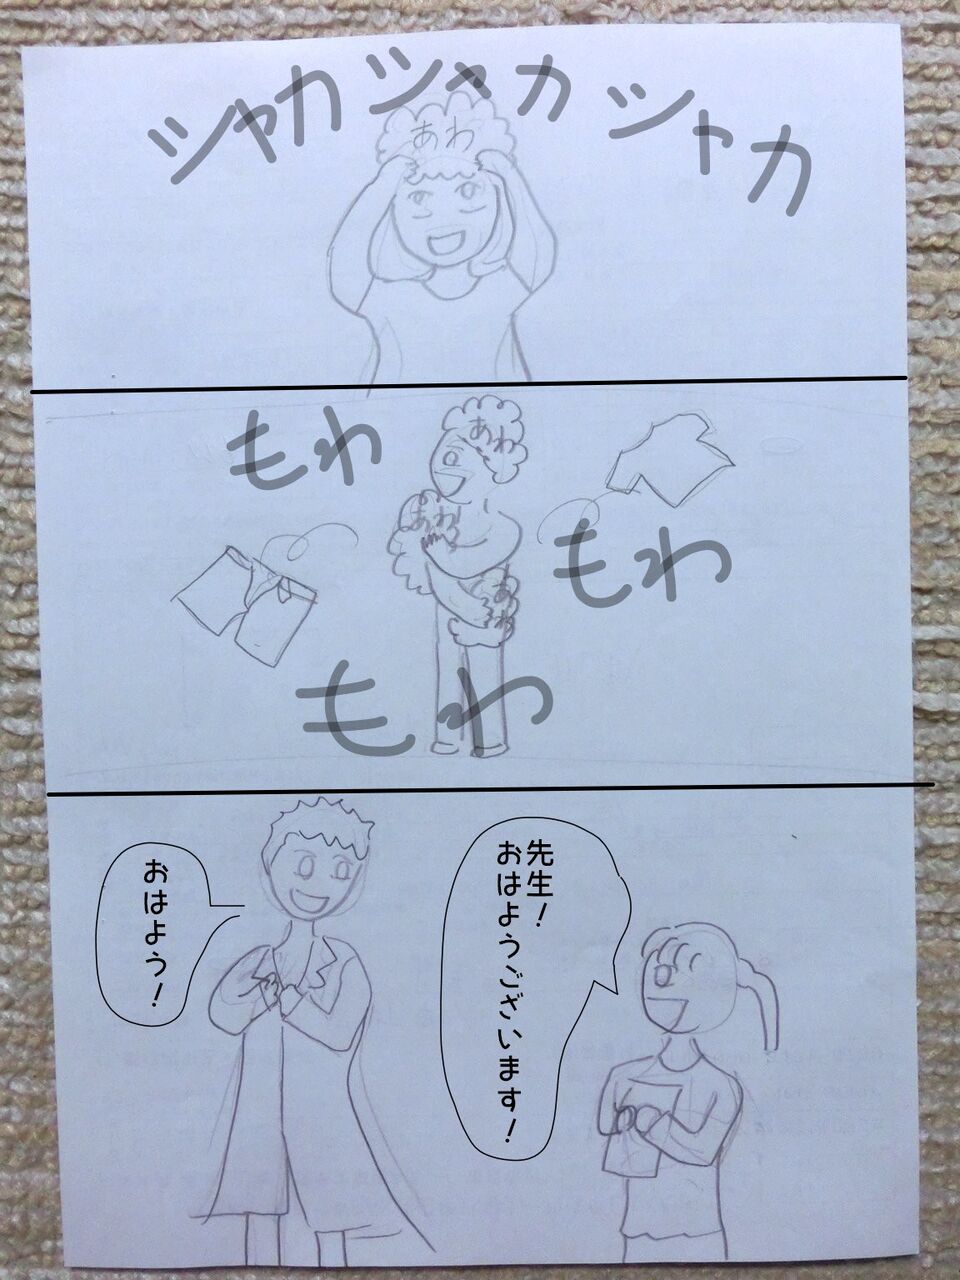 シャカシャカシャカ
あわ
もわ
あわ
もわ
あわ
あわ
もわ
先生！
おはようございます！
おはよう！